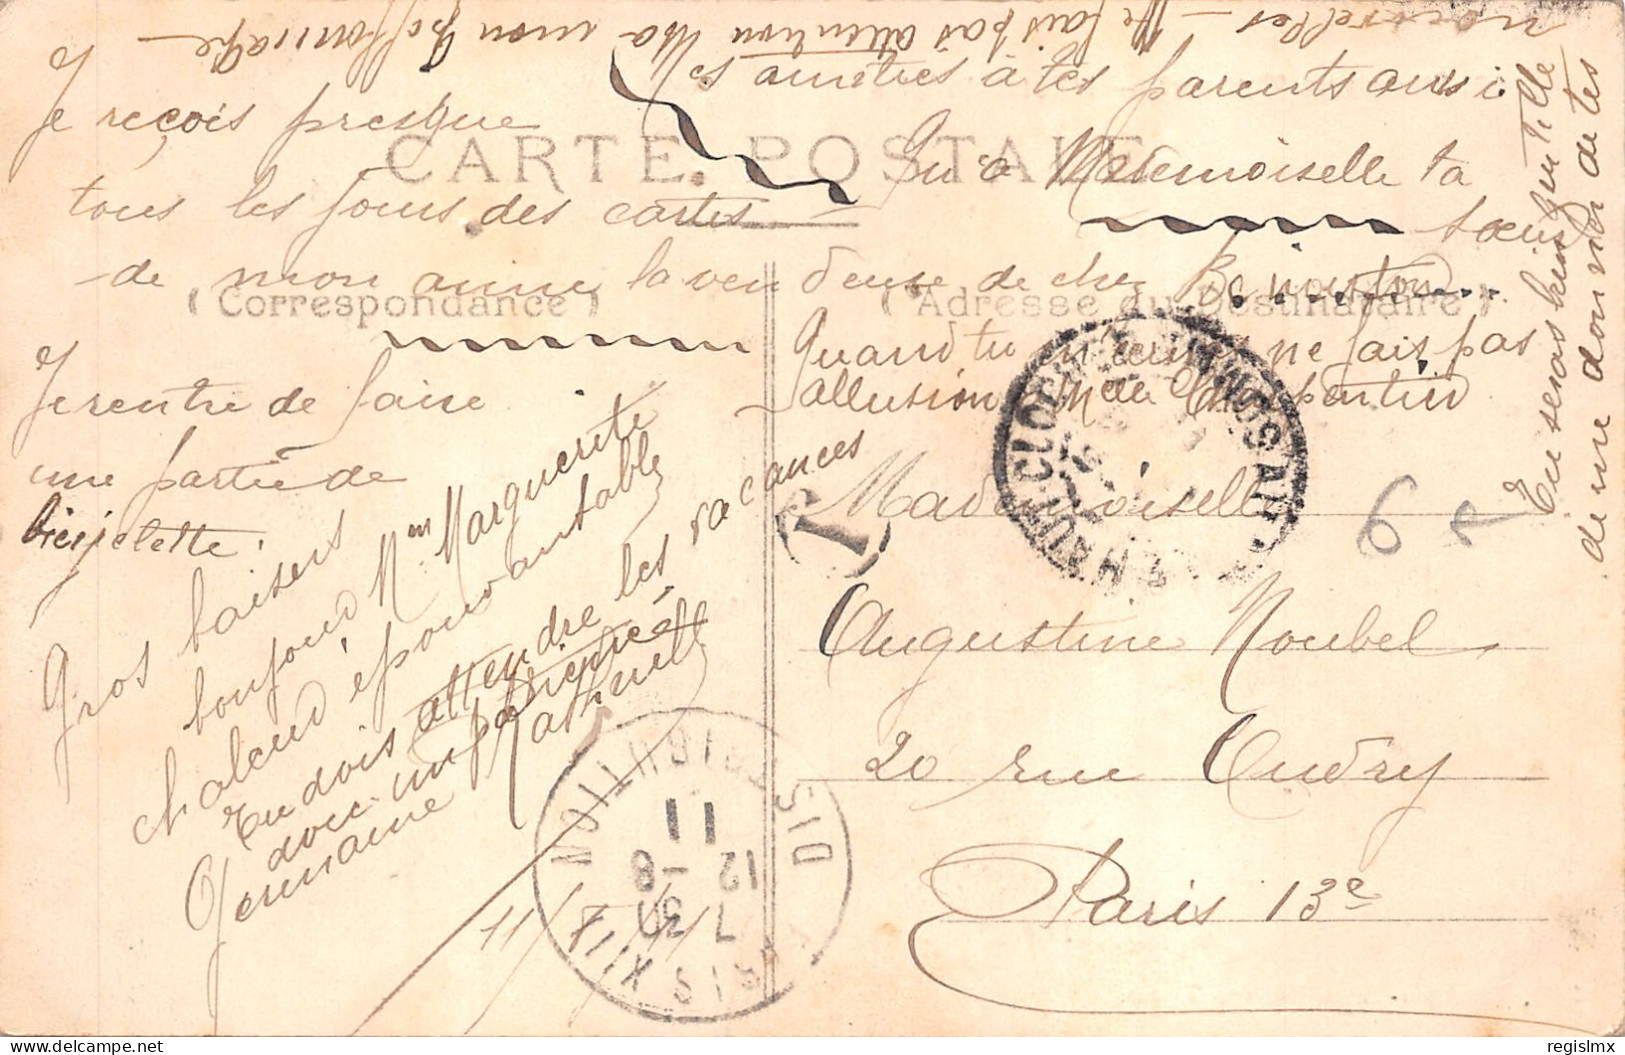 CARTE POSTALE
(Correspondance)
(Adresse du Destinataire)
Je reçois presque
tous les jours des cartes
de mon amie la vendeuse de chez
Je rentre de faire
une partie de
bicyclette.
Gros baisers
bonjour Marguerite
chaleur épouvantable
Tu dois attendre les vacances
avec impatience
Germaine
11/8/11
amitiés à tes parents aussi
qu'à Mademoiselle ta
soeur
Quand tu ne fais pas
allusion à Melle
Tu seras bien gentille
de me donner de tes
nouvelles - Ne fais pas attention à mon griffonnage -
Mademoiselle
Augustine Noubel
20 rue Oudry
Paris 13e
T
6
PARIS XIII
DISTRIBUTION
7 30
12-8
11
regislmx